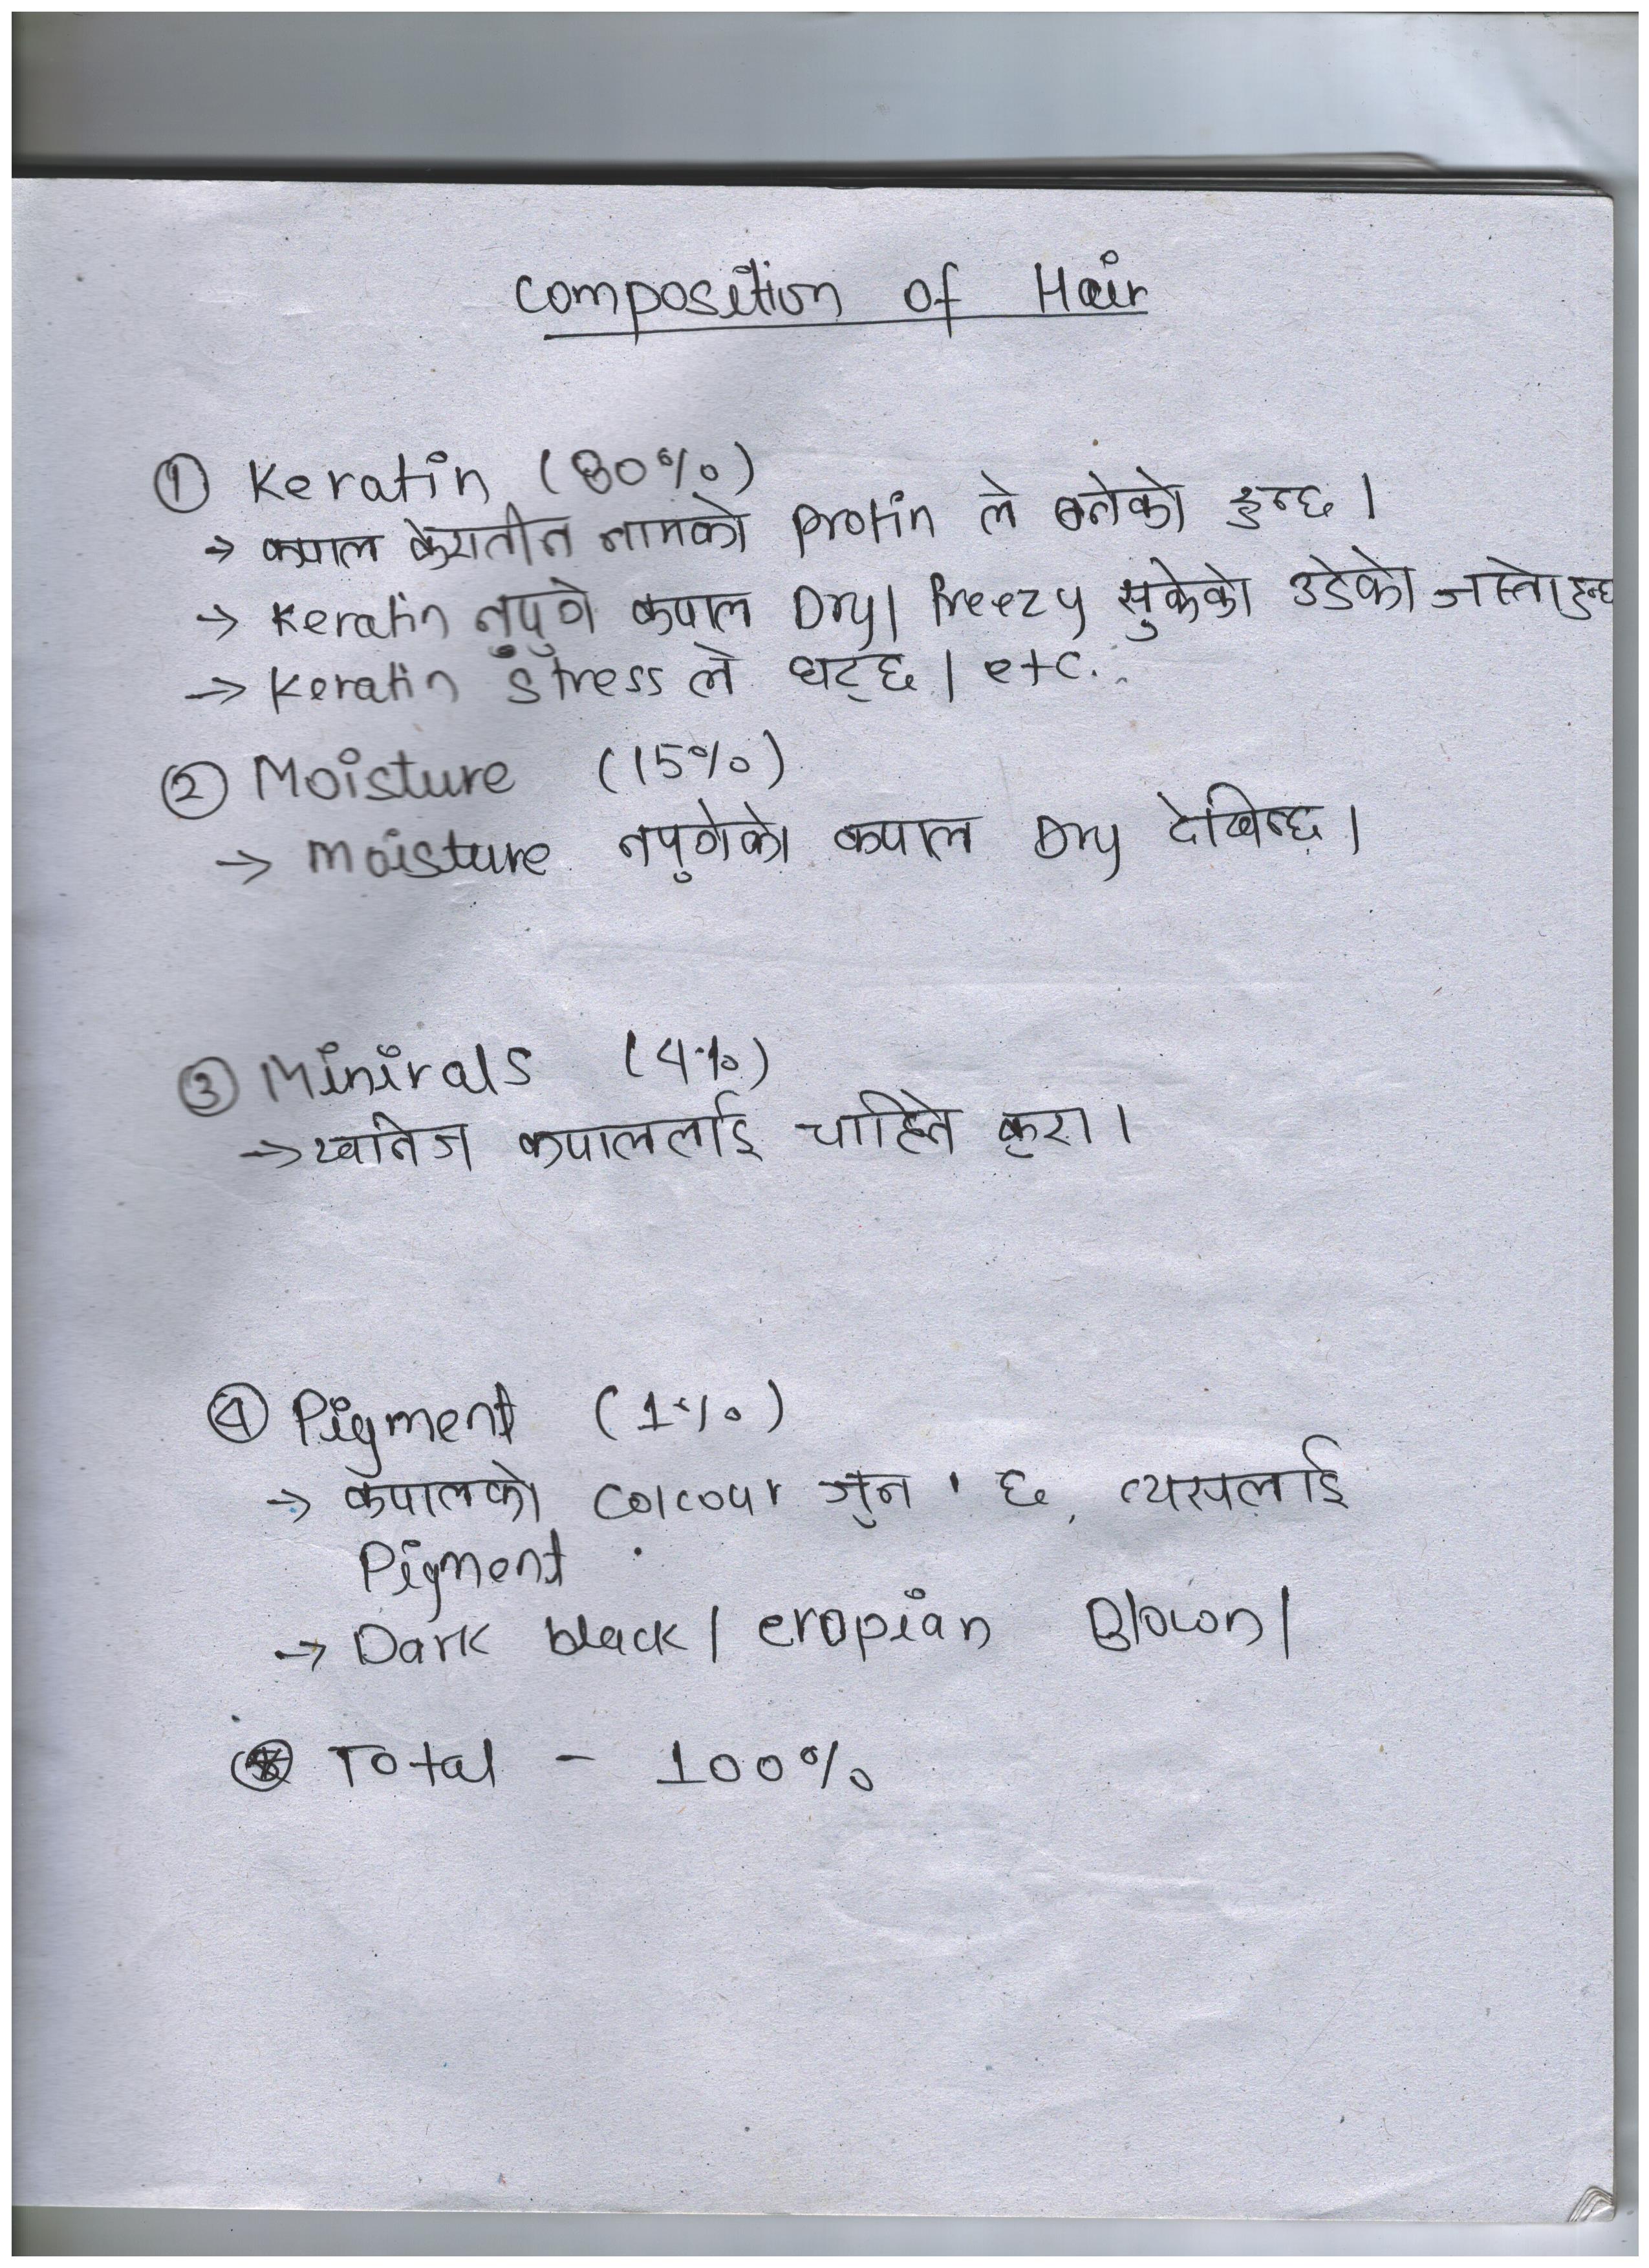 Composition of Hair
① Keratin (80%)
→ कपाल केरातीन नामको Protin ले बनेको हुन्छ।
→ Keratin नपुगे कपाल Dry| Freezy सुकेको उडेको जस्तो हुन्छ
→ Keratin Stress ले घट्छ। etc..
② Moisture (15%)
→ moisture नपुगेको कपाल Dry देखिन्छ।
③ Minirals (4%)
→ खनिज कपाललाई चाहिने कुरा।
④ Pigment (1%)
→ कपालको Colour जुन छ, त्यसलाई
Pigment
→ Dark black | eropian Blown|
⊛ Total - 100%